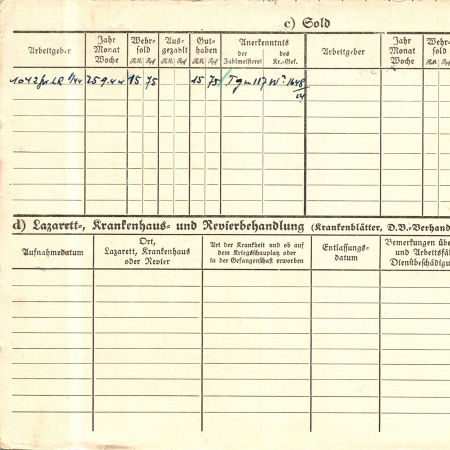 c) Sold
Arbeitgeber Jahr Monat Woche Wehr-sold R.M. Rpf Aus-gezahlt R.M. Rpf Gut-haben R.M. Rpf Anerkenntnis der Zahlmeisterei des Kr.-Gef. Arbeitgeber Jahr Monat Woche Wehr-sold R.M. Rpf
25.9.44 15 75 15 75
d) Lazarett-, Krankenhaus- und Revierbehandlung (Krankenblätter, D.B.-Verhand
Aufnahmedatum Ort, Lazarett, Krankenhaus oder Revier Art der Krankheit und ob auf dem Kriegsschauplatz oder in der Gefangenschaft erworben Entlassungs-datum Bemerkungen übe und Arbeitsfä Dienstbeschädigu